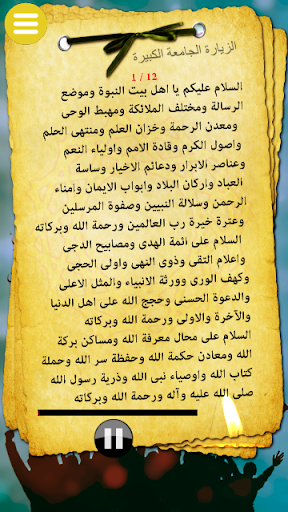 الزيارة الجامعة الكبيرة
1 / 12
السلام عليكم يا اهل بيت النبوة وموضع
الرسالة ومختلف الملائكة ومهبط الوحى
ومعدن الرحمة وخزان العلم ومنتهى الحلم
واصول الكرم وقادة الامم واولياء النعم
وعناصر الابرار ودعائم الاخيار وساسة
العباد واركان البلاد وابواب الايمان وامناء
الرحمن وسلالة النبيين وصفوة المرسلين
وعترة خيرة رب العالمين ورحمة الله وبركاته
السلام على ائمة الهدى ومصابيح الدجى
واعلام التقى وذوى النهى واولى الحجى
وكهف الورى وورثة الانبياء والمثل الاعلى
والدعوة الحسنى وحجج الله على اهل الدنيا
والآخرة والاولى ورحمة الله وبركاته
السلام على محال معرفة الله ومساكن بركة
الله ومعادن حكمة الله وحفظة سر الله وحملة
كتاب الله واوصياء نبى الله وذرية رسول الله
صلى الله عليه وآله ورحمة الله وبركاته